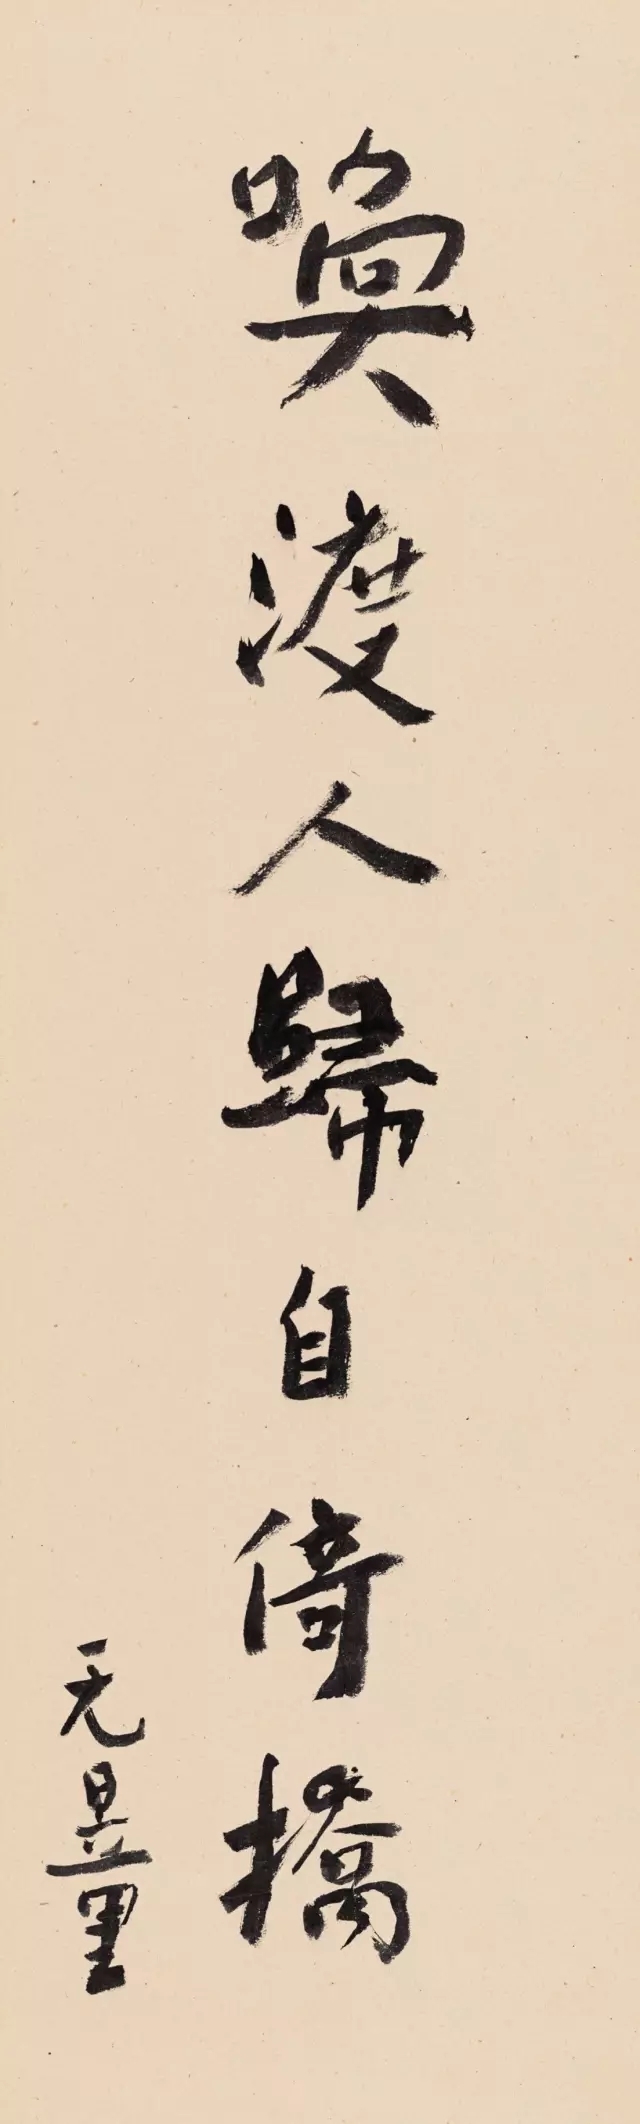 喚渡人歸自倚橋
无量